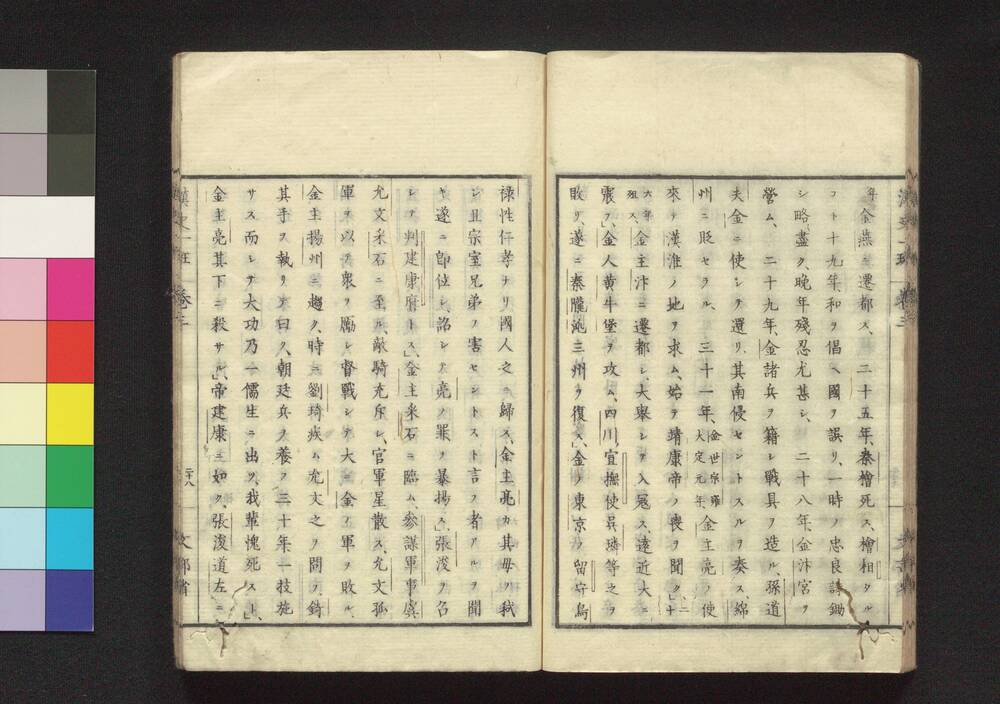 年、金燕ニ遷都ス、二十五年、秦檜死ス、檜相タル
フト十九年、和ヲ倡ヘ國ヲ誤リ、一時ノ忠良誅鋤
シ略盡ク、晚年殘忍尤甚シ、二十八年、金汴宮ヲ
營ム、二十九年、金諸兵ヲ籍シ戰具ヲ造ル、孫道
夫金ニ使シテ還リ、其南侵セントスルヲ奏ス、綿
州ニ貶セラル、三十一年、金世宗雍大定元年、金主亮ノ使
來テ漢淮ノ地ヲ求ム、始テ靖康帝ノ喪ヲ聞ク、二十
六年殂ス、金主汴ニ遷都シ、大舉シテ入寇ス、遠近大ニ
震フ、金人黄牛堡ヲ攻ム、四川宣撫使吳璘等之ヲ
敗リ、遂ニ秦隴洮三州ヲ復ス、金ノ東京ノ留守烏
祿性仁孝ナリ國人之ニ歸ス、金主亮カ其毋ヲ弑
シ且宗室兄弟ヲ害セントスト言フ者アルヲ聞
キ遂ニ卽位シ、詔シテ亮ノ罪ヲ暴揚ス、張浚ヲ召
シテ判建康府トス、金主采石ニ臨ム、參謀軍事虞
允文采石ニ至ル、敵騎充斥シ、官軍星散ス、允文孤
軍ヲ以テ衆ヲ勵シ督戰シテ大ニ金ノ軍ヲ敗ル、
金主揚州ニ趣ク、時ニ劉琦疾ム允文之ヲ問フ、錡
其手ヲ執リテ曰ク、朝廷兵ヲ養フ三十年一技施
サス而シテ大功乃一儒生ニ出ツ、我輩愧死スト、
金主亮其下ニ殺サル、帝建康ニ如ク、張浚道左ニ
漢史一班 卷三
二十八
文部省